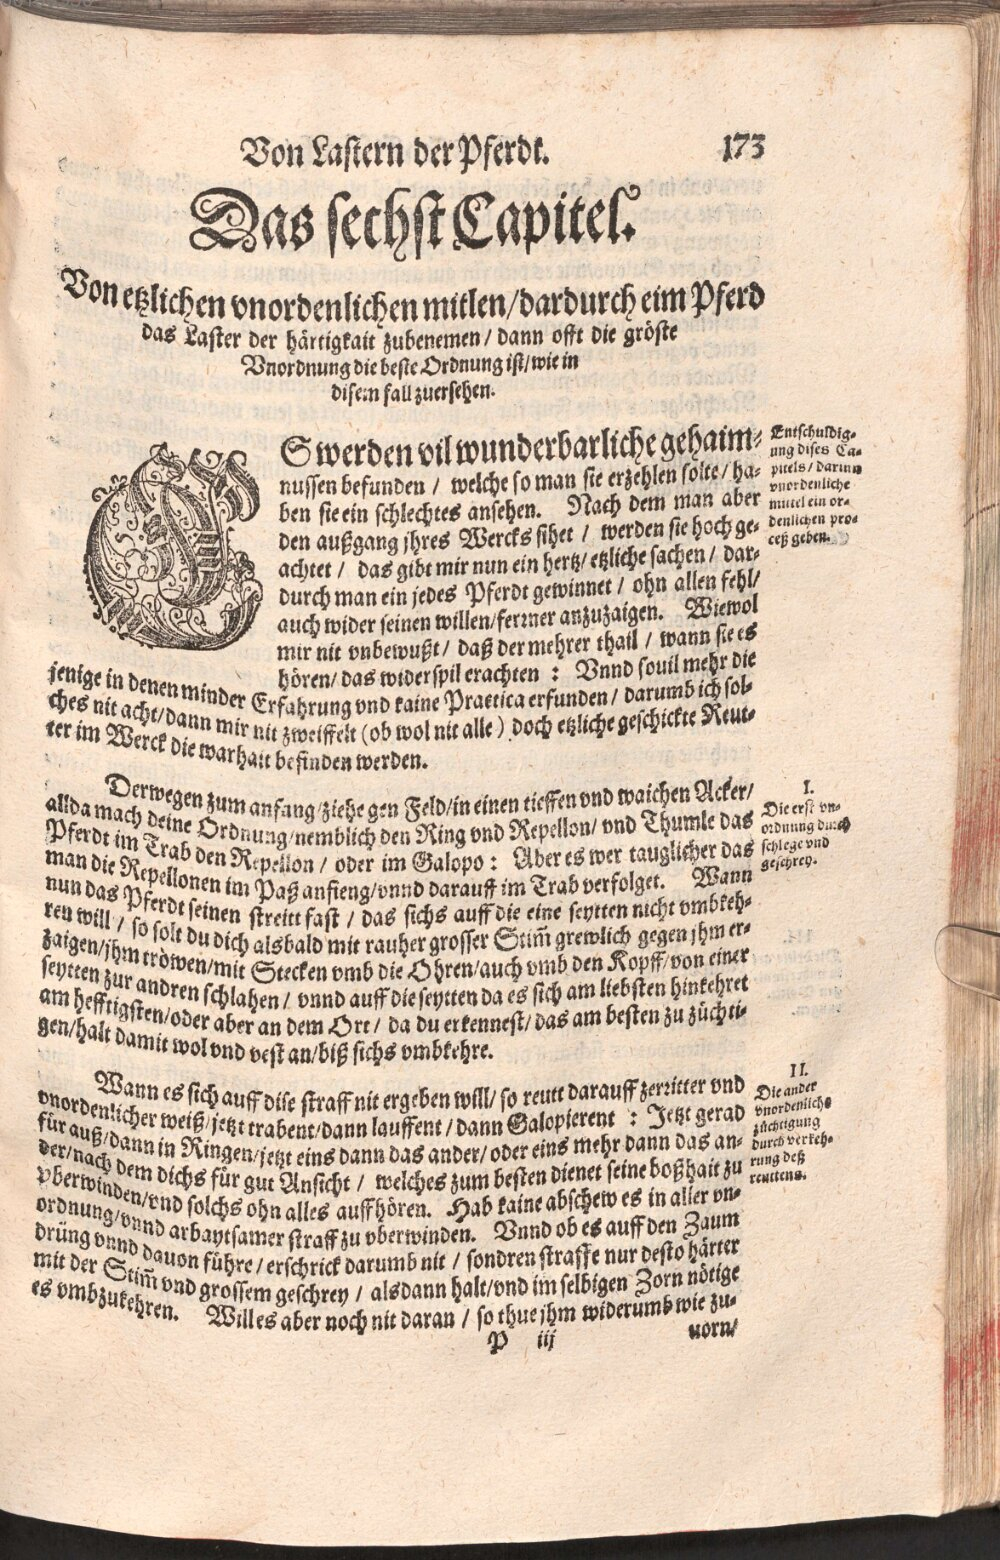 Von Lastern der Pferdt.
173
Das sechst Capitel.
Von etzlichen vnordenlichen mitlen/dardurch eim Pferd
das Laster der härtigkait zubenemen/ dann offt die gröste
Vnordnung die beste Ordnung ist/ wie in
disem fall zuersehen.
ES werden vil wunderbarliche gehaim-
nussen befunden / welche so man sie erzehlen solte/ ha-
ben sie ein schlechtes ansehen. Nach dem man aber
den außgang jhres Wercks sihet / werden sie hoch ge-
achtet / das gibt mir nun ein hertz/ etzliche sachen / dar-
durch man ein jedes Pferdt gewinnet / ohn allen fehl/
auch wider seinen willen/ ferrner anzuzaigen. Wiewol
mir nit vnbewußt/ daß der mehrer thail / wann sie es
hören/ das widerspil erachten : Vnnd souil mehr die
jenige in denen minder Erfahrung vnd kaine Practica erfunden / darumb ich sol-
ches nit acht/ dann mir nit zweiffelt (ob wol nit alle) doch etzliche geschickte Reut-
ter im Werck die warhait befinden werden.
Entschuldig-
ung dises Ca-
pitels / darinn
vnordenliche
mittel ein or-
denlichen pro-
ceß geben.
Derwegen zum anfang/ ziehe gen Feld/ in einen tieffen vnd waichen Acker/
allda mach deine Ordnung/ nemblich den Ring vnd Repellon/ vnd Thumle das
Pferdt im Trab den Repellon / oder im Galopo : Aber es wer tauglicher das
man die Repellonen im Paß anfieng/ vnnd darauff im Trab verfolget. Wann
nun das Pferdt seinen streitt fast / das sichs auff die eine seytten nicht vmbkeh-
ren will / so solt du dich alsbald mit rauher grosser Stim̃ grewlich gegen jhm er-
zaigen/ jhm tröwen/ mit Stecken vmb die Ohren/ auch vmb den Kopff/ von einer
seytten zur andren schlahen / vnnd auff die seytten da es sich am liebsten hinkehret
am hefftigsten/ oder aber an dem Ort / da du erkennest/ das am besten zu züchti-
gen/ halt damit wol vnd vest an/ biß sichs vmbkehre.
I.
Die erst vn-
ordnung durch
schlege vnd
geschrey.
Wann es sich auff dise straff nit ergeben will/ so reutt darauff zerritter vnd
vnordenlicher weiß/ jetzt trabent/ dann lauffent / dann Galopierent : Jetzt gerad
für auß/ dann in Ringen/ jetzt eins dann das ander/ oder eins mehr dann das an-
der/ nach dem dichs für gut Ansicht / welches zum besten dienet seine boßhait zu
vberwinden/ vnd solchs ohn alles auffhören. Hab kaine abschew es in aller vn-
ordnung/ vnnd arbaytsamer straff zu vberwinden. Vnnd ob es auff den Zaum
drüng vnnd dauon führe / erschrick darumb nit / sondren straffe nur desto härter
mit der Stim̃ vnd grossem geschrey / alsdann halt/ vnd im selbigen Zorn nötige
es vmbzukehren. Will es aber noch nit daran / so thue jhm widerumb wie zu-
II.
Die ander
vnordenliche
züchtigung
durch verkeh-
rung deß
reuttens.
P iij
uorn/